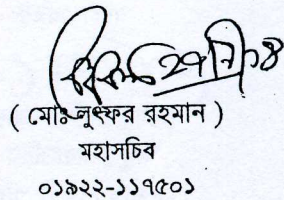 ( মোঃ লুৎফর রহমান )
মহাসচিব
০১৯২২-১১৭৫০১